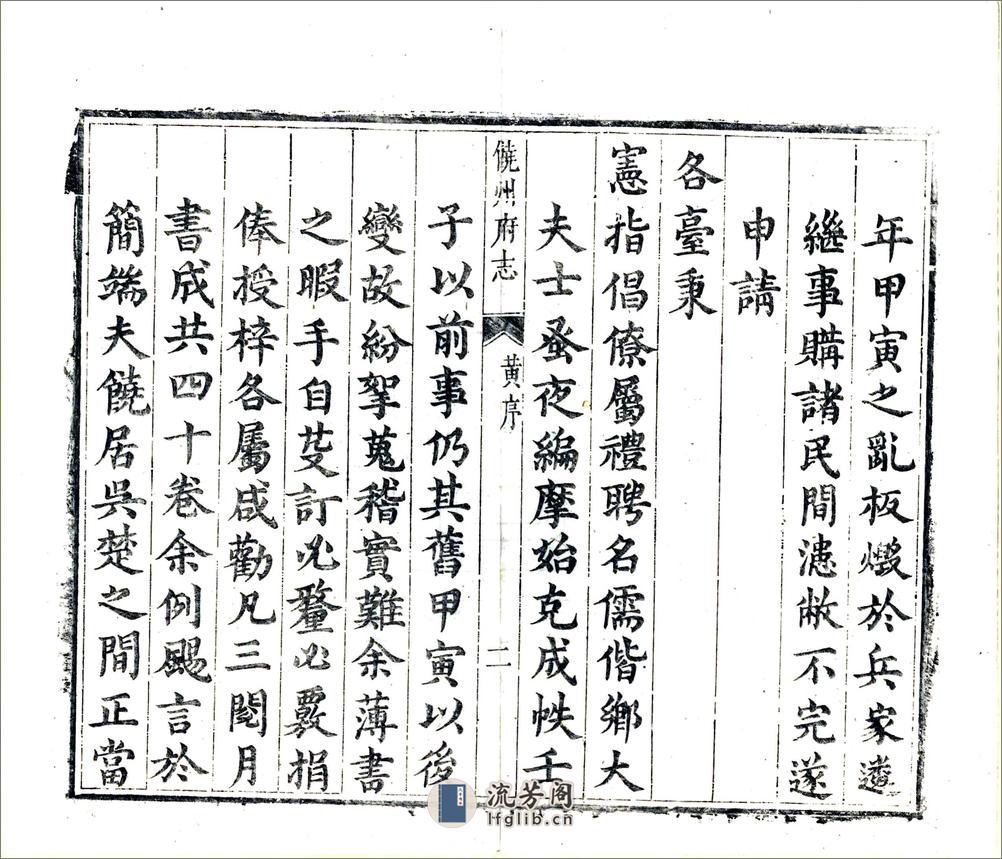 年甲寅之亂板燬於兵家遺
繼事購諸民間漶敝不完遂
申請
各臺秉
憲指倡僚屬禮聘名儒偕鄉大
夫士蚤夜編摩始克成帙壬
饒州府志
黄序
二
子以前事仍其舊甲寅以後
變故紛挐蒐稽實難余薄書
之暇手自芟訂必釐必覈捐
俸授梓各屬咸勸凡三閱月
書成共四十卷余例颺言於
簡端夫饒居吳楚之間正當
流芳阁
lfglib.cn